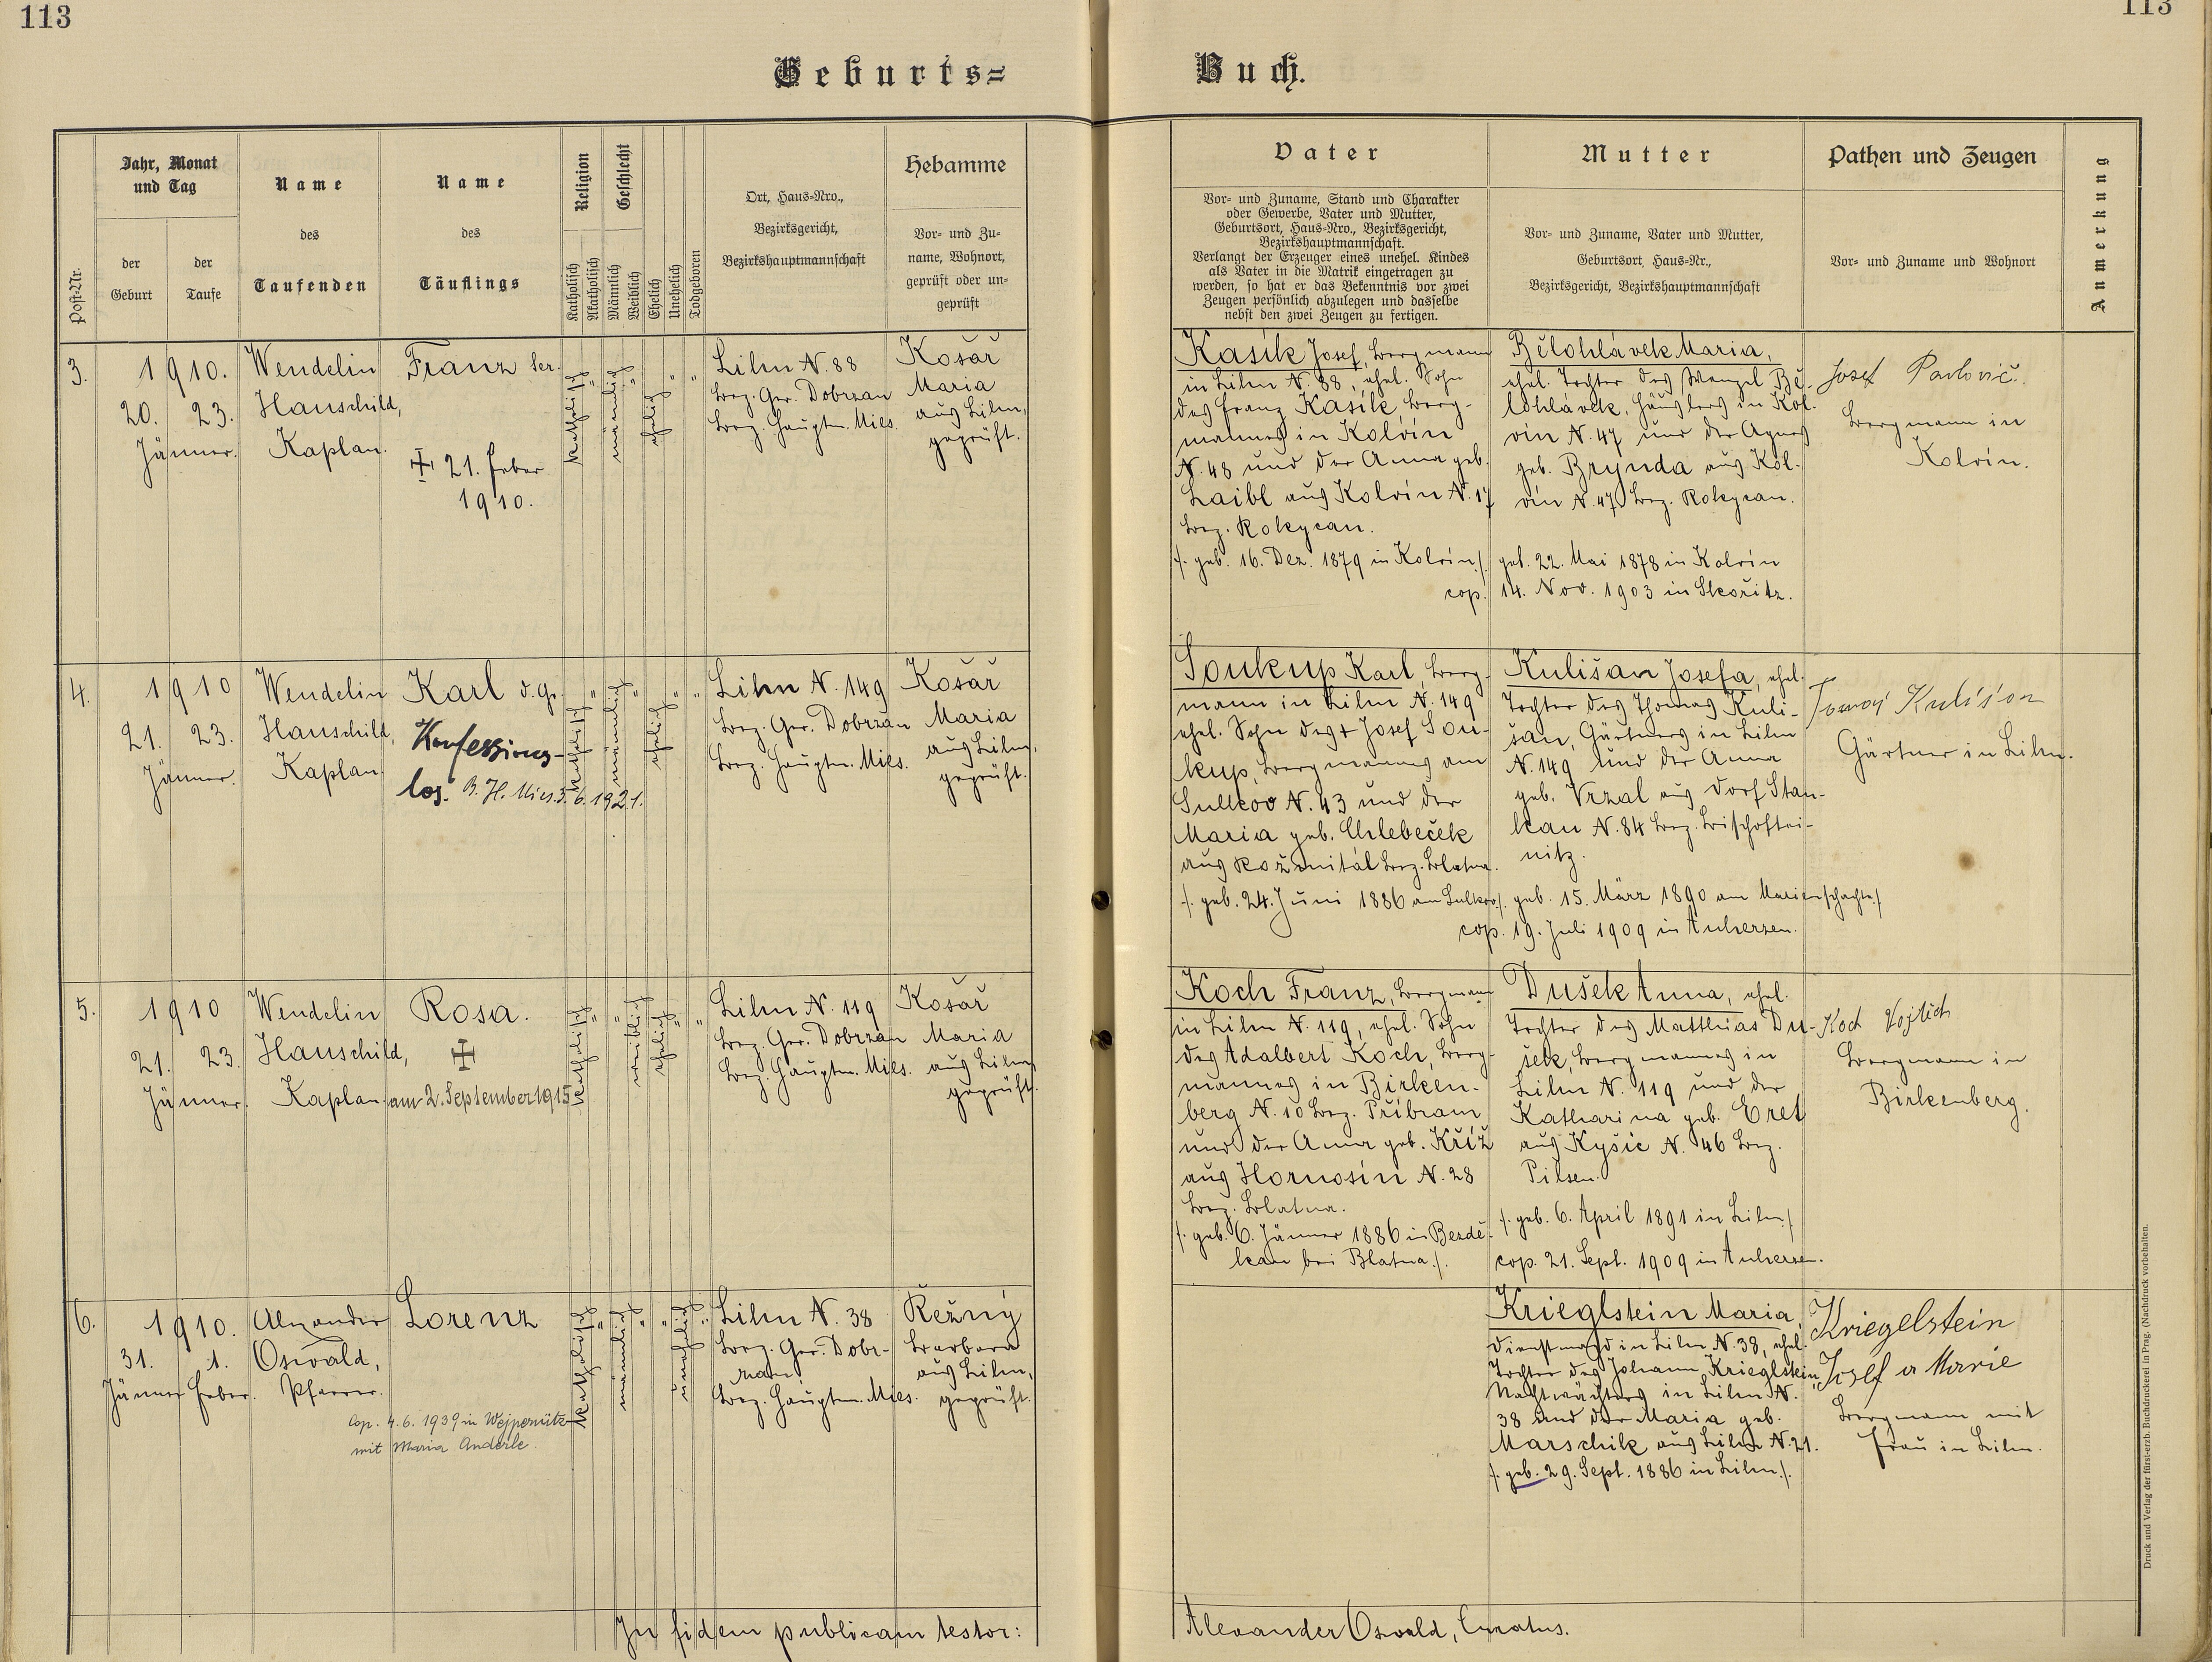 113
113
Geburts=
Buch.
Post-Nr.
Jahr, Monat
und Tag
der
Geburt
der
Taufe
Name
des
Taufenden
Name
des
Täuflings
Religion
Katholisch
Akatholisch
Geschlecht
Männlich
Weiblich
Ehelich
Unehelich
Todgeboren
Ort, Haus-Nro.,
Bezirksgericht,
Bezirkshauptmannschaft
Hebamme
Vor- und Zu-
name, Wohnort,
geprüft oder un-
geprüft
Vater
Vor- und Zuname, Stand und Charakter
oder Gewerbe, Vater und Mutter,
Geburtsort, Haus-Nro., Bezirksgericht,
Bezirkshauptmannschaft.
Verlangt der Erzeuger eines unehel. Kindes
als Vater in die Matrik eingetragen zu
werden, so hat er das Bekenntnis vor zwei
Zeugen persönlich abzulegen und dasselbe
nebst den zwei Zeugen zu fertigen.
Mutter
Vor- und Zuname, Vater und Mutter,
Geburtsort, Haus-Nr.,
Bezirksgericht, Bezirkshauptmannschaft
Pathen und Zeugen
Vor- und Zuname und Wohnort
Anmerkung
3.
1910.
20. 23.
Jänner.
Wendelin
Hauschild,
Kaplan.
Franz Ser.
† 21. Feber
1910.
katholisch
"
männlich
"
ehelich
"
"
Lihn N. 88
Bez. Ger. Dobrzan
Bez. Hauptm. Mies.
Košař
Maria
aus Lihn,
geprüft.
Kasík Josef, Bergmann
in Lihn N. 88, ehel. Sohn
des Franz Kasík, Berg-
mannes in Kolvín
N. 48 und der Anna geb.
Laibl aus Kolvín N. 17
Bez. Rokycan.
/. geb. 16. Dez. 1879 in Kolvín ./
Bělohlávek Maria,
ehel. Tochter des Wenzel Bě-
lohlávek, Häuslers in Kol-
vín N. 47 und der Agnes
geb. Brynda aus Kol-
vín N. 47 Bez. Rokycan.
geb. 22. Mai 1878 in Kolvín
cop. 14. Nov. 1903 in Skořitz.
Josef Pavlovič.
Bergmann in
Kolvín.
4.
1910
21. 23.
Jänner.
Wendelin
Hauschild,
Kaplan
Karl d. Gr.
Konfessions-
los. B. H. Mies 3. 6. 1921.
katholisch
"
männlich
"
ehelich
"
"
Lihn N. 149
Bez. Ger. Dobrzan
Bez. Hauptm. Mies.
Košař
Maria
aus Lihn,
geprüft.
Soukup Karl, Berg-
mann in Lihn N. 149
ehel. Sohn des † Josef Sou-
kup, Bergmannes am
Sulkov N. 43 und der
Maria geb. Chlebeček
aus Rožmitál Bez. Blatna.
/. geb. 24. Juni 1886 am Sulkov ./
Kulišan Josefa, ehel.
Tochter des Thomas Kuli-
šan, Gärtners in Lihn
N. 149 und der Anna
geb. Vrzal aus Dorf Stan-
kau N. 84 Bez. Bischoftei-
nitz.
geb. 15. März 1890 am Marienschachte ./
cop. 19. Juli 1909 in Auherzen.
Tomáš Kulišan
Gärtner in Lihn.
5.
1910
21. 23.
Jänner.
Wendelin
Hauschild,
Kaplan
Rosa.
✠
am 2. September 1915
katholisch
"
"
weiblich
ehelich
"
"
Lihn N. 119
Bez. Ger. Dobrzan
Bez. Hauptm. Mies.
Košař
Maria
aus Lihn,
geprüft
Koch Franz, Bergmann
in Lihn N. 119, ehel. Sohn
des Adalbert Koch, Berg-
mannes in Birken-
berg N. 10 Bez. Příbram
und der Anna geb. Kříž
aus Hornosín N. 28
Bez. Blatna.
/. geb. 6. Jänner 1886 in Bezdě-
kau bei Blatna ./.
Dušek Anna, ehel.
Tochter des Matthias Du-
šek, Bergmannes in
Lihn N. 119 und der
Katharina geb. Eret
aus Kyšic N. 46 Bez.
Pilsen.
/. geb. 6. April 1891 in Lihn ./
cop. 21. Sept. 1909 in Auherzen.
Koch Vojtěch
Bergmann in
Birkenberg.
6.
1910.
31. 1.
Jänner Feber.
Alexander
Oswald,
Pfarrer.
Lorenz
Cop. 4. 6. 1939 in Wejpernitz
mit Maria Anderle.
katholisch
"
männlich
"
"
unehelich
"
Lihn N. 38
Bez. Ger. Dobr-
zan
Bez. Hauptm. Mies.
Řežný
Barbara
aus Lihn,
geprüft.
Krieglstein Maria,
Dienstmagd in Lihn N. 38, ehel.
Tochter des Johann Krieglstein,
Nachtwächters in Lihn N.
38 und der Maria geb.
Marschik aus Lihn N. 21.
/. geb. 29. Sept. 1886 in Lihn ./.
Kriegelstein
Josef a Marie
Bergmann mit
Frau in Lihn.
In fidem publicam testor:
Alexander Oswald, Curatus.
Druck und Verlag der fürst-erzb. Buchdruckerei in Prag. (Nachdruck vorbehalten.